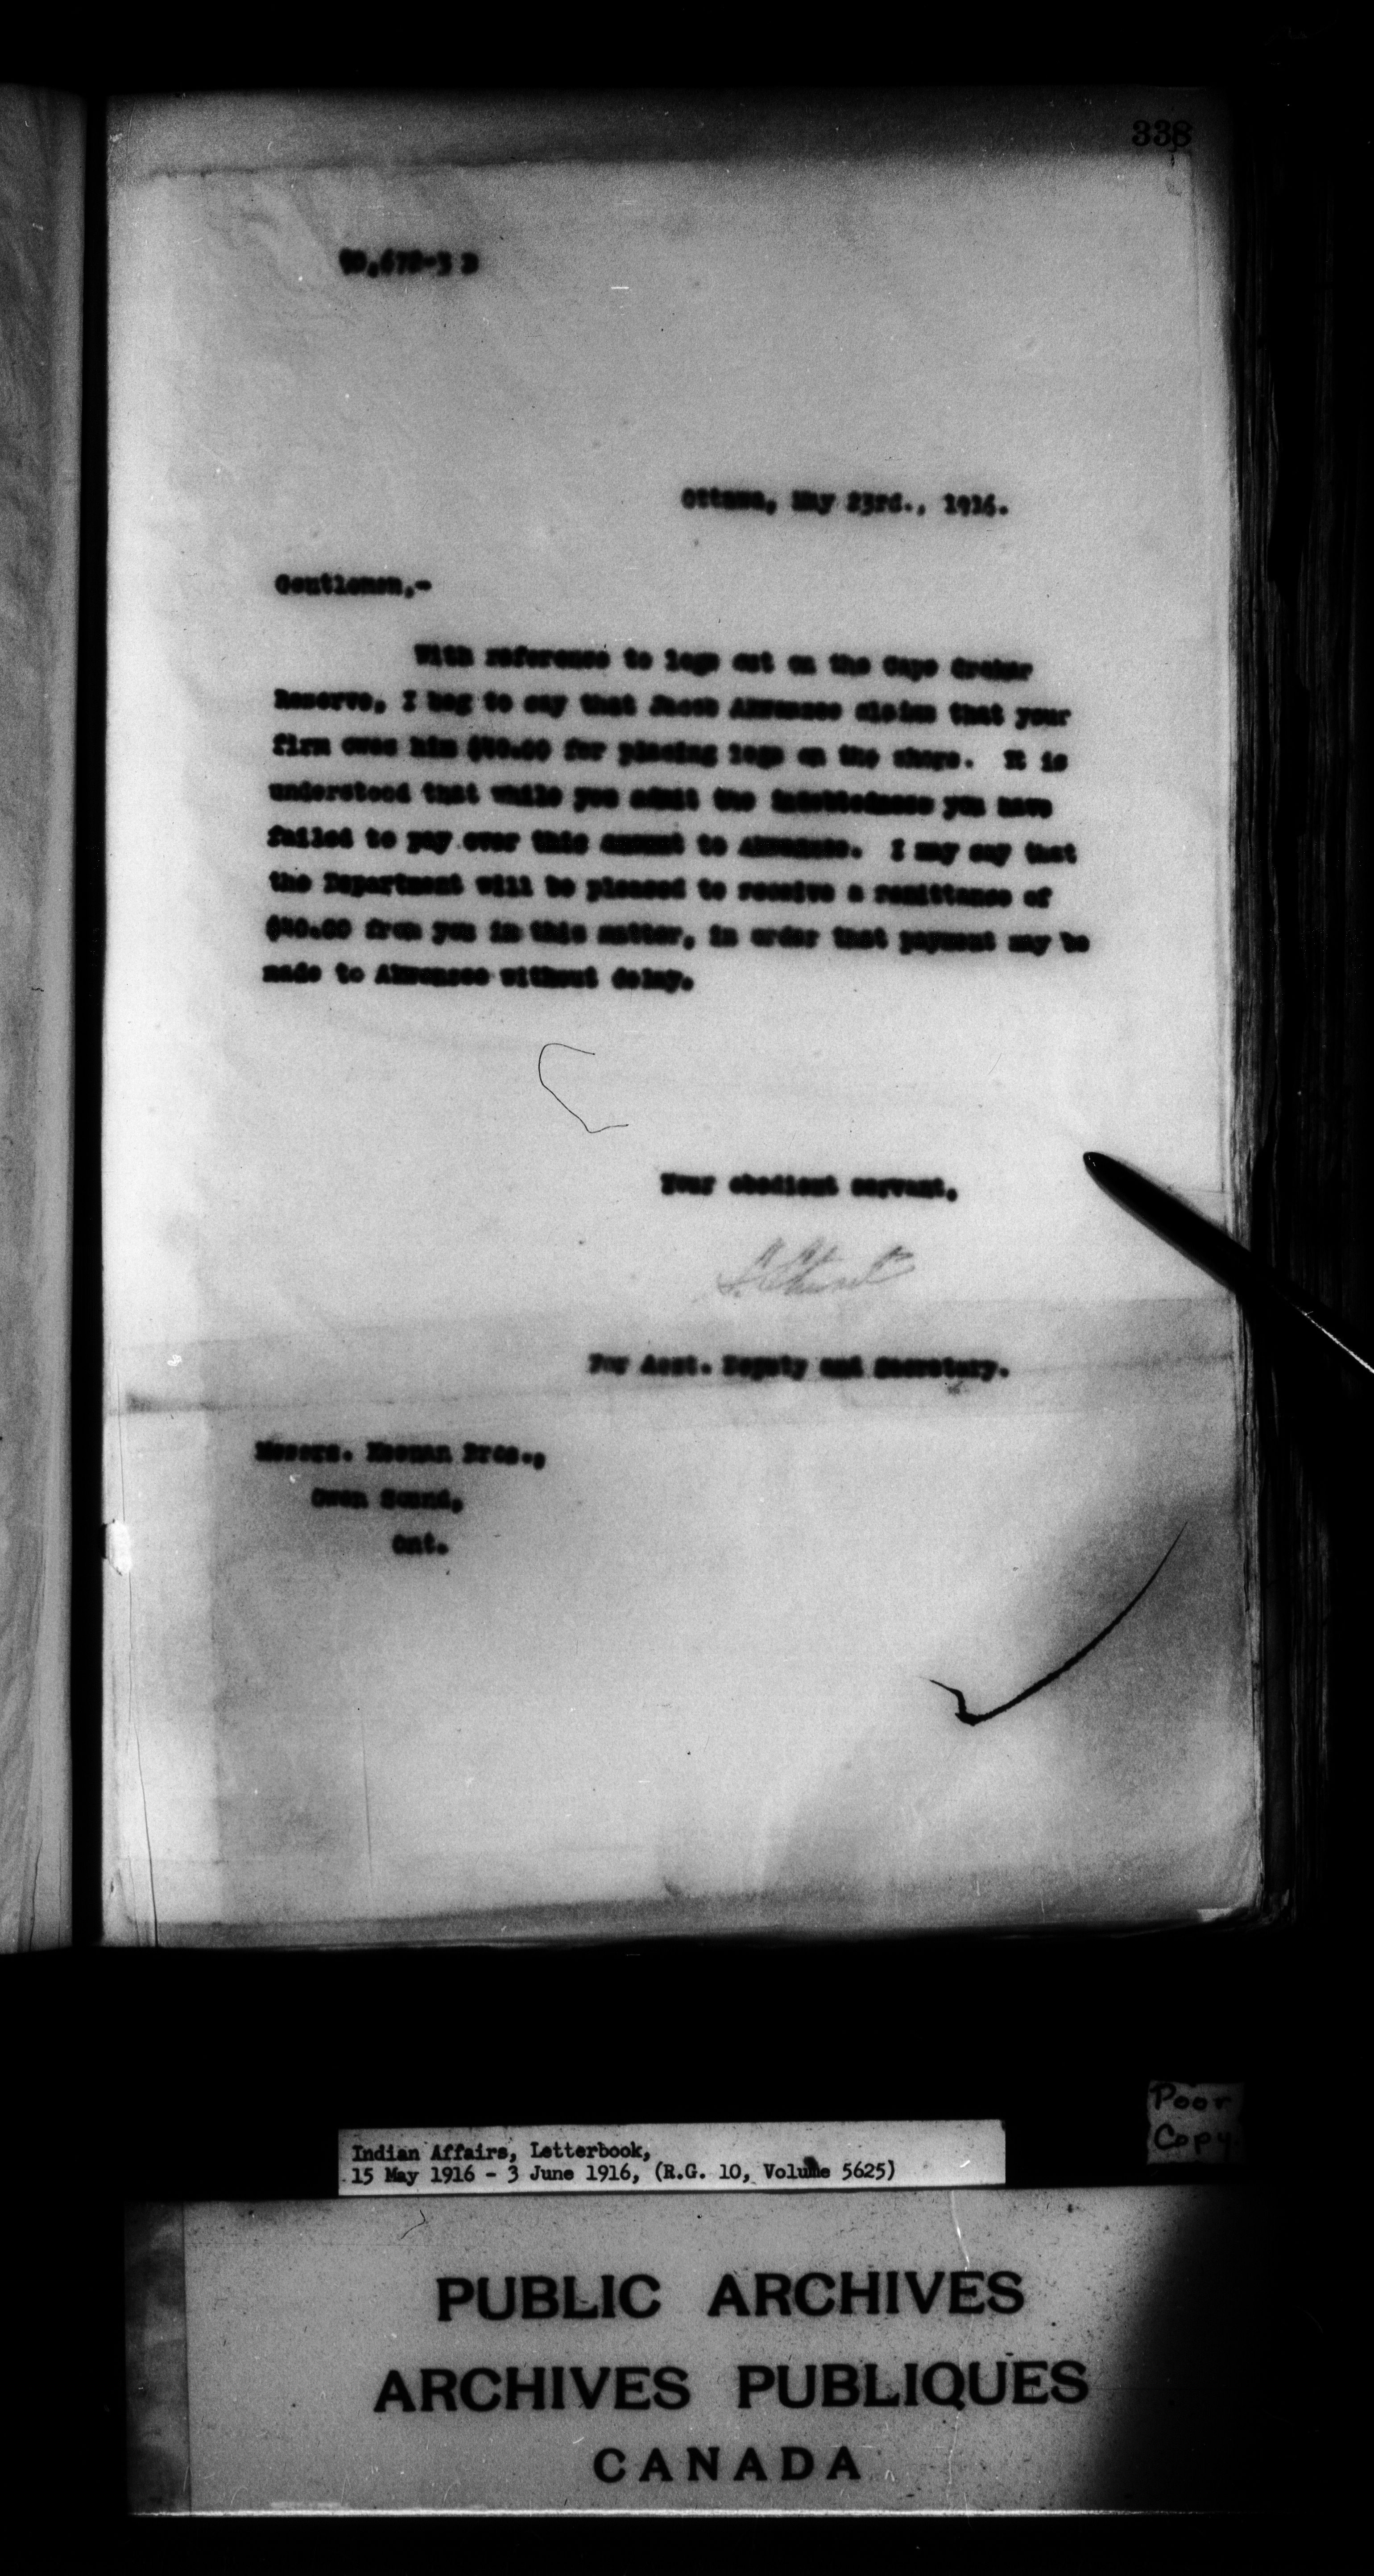 338
Ottawa, May 23rd., 1916.
Gentlemen,-
With reference to logs cut on the Cape Croker
Reserve, I beg to say that Jacob Akwensee claims that your
firm owes him $40.00 for placing logs on the shore. It is
understood that while you admit the indebtedness you have
failed to pay over this amount to Akwensee. I may say that
the Department will be pleased to receive a remittance of
$40.00 from you in this matter, in order that payment may be
made to Akwensee without delay.
Your obedient servant,
For Asst. Deputy and Secretary.
Messrs. Keenan Bros.,
Owen Sound,
Ont.
Poor
Copy
Indian Affairs, Letterbook,
15 May 1916 - 3 June 1916, (R.G. 10, Volume 5625)
PUBLIC ARCHIVES
ARCHIVES PUBLIQUES
CANADA